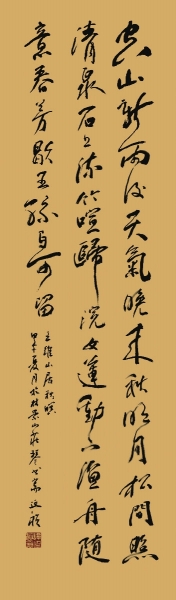 空山新雨後天氣晚来秋明月松間照
清泉石上流竹喧歸浣女蓮動下漁舟隨
意春芳歇王孫自可留
王維山居秋暝
甲午夏月於林景山莊